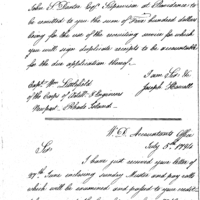 John S Dexter Esqr Supervisor at Providence to
be remitted to you the sum of Four hundred dollars
being for the use of the recruiting service for which
you will sign duplicate receipts to be accountable
for the due application thereof.
I am Sir &c
Joseph Howell
Capt. Wm Littlefield
of the Corps of Artill. & Engineers
Newport - Rhode Island
W. D. Accountants Office
July 5th 1794
Sir
I have just received your letter of
27th June enclosing sundry Muster and pay rolls
which will be examined and passed to your credit